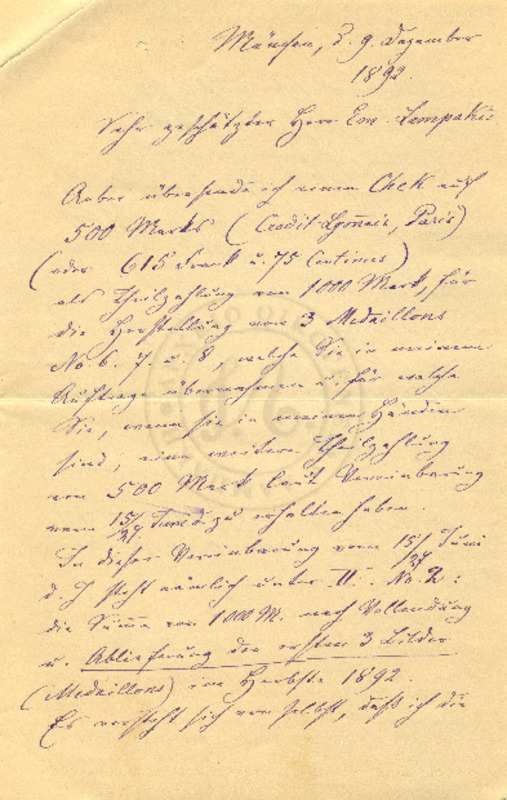 München, d. 9. Dezember
1892.
Sehr geschätzter Herr Em. Lampakis
übersende ich einen Chek auf
500 Marks (Credit Lyonnais, Paris)
(oder 615 Frank u. 75 Centimes)
als Theilzahlung von 1000 Mark, für
die Herstellung von 3 Medaillons
No. 6. 7. u. 8, welche Sie in meinem
Auftrage übernahmen u. für welche
Sie, wenn sie in meinen Händen
sind, eine weitere Theilzahlung
von 500 Mark laut Vereinbarung
vom 15/27 Juni zu erhalten haben.
In dieser Vereinbarung vom 15/27 Juni
d. J. steht nämlich unter II. No. 2:
die Summe von 1000 M. nach Vollendung
u. Ablieferung der ersten 3 Bilder
(Medaillons) im Herbste 1892.
Es versteht sich von selbst, daß ich die